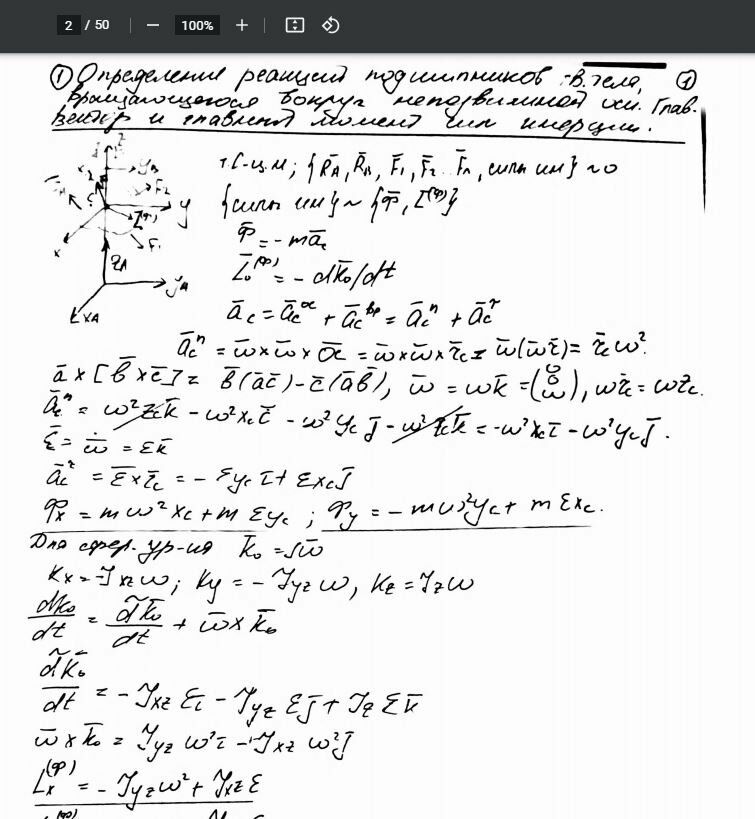 2 / 50 — 100% +
① Определение реакций подшипников :-В. тела, ①
вращающегося вокруг неподвижной оси. Глав.
вектор и главный момент сил инерции.
т.C-ц.м; {R̄_A, R̄_B, F̄_1, F̄_2.. F̄_n, силы ин} ~ 0
{силы ин} ~ {Φ̄, L̄^(Φ)}
z
y_B
F_2
y
L^(Φ)
x
F_1
z_A
y_A
x_A
Φ̄ = -mā_c
L̄_o^(Φ) = - dk̄_o/dt
ā_c = ā_c^ос + ā_c^вр = ā_c^n + ā_c^τ
ā_c^n = ω̄ × ω̄ × OC = ω̄ × ω̄ × r̄_c = ω̄(ω̄ r̄) = r̄_c ω².
ā × [b̄ × c̄] = b̄(āc̄) - c̄(āb̄), ω̄ = ωk̄ = (0 0 ω), ωr̄_c = ωz_c.
ā_c^n = ω²z_c k̄ - ω²x_c ī - ω²y_c j̄ - ω²z_c k̄ = -ω²x_c ī - ω²y_c j̄.
ε̄ = ω̄̇ = εk̄
ā_c^τ = ε̄ × r̄_c = - εy_c ī + εx_c j̄
Φ_x = mω²x_c + mεy_c ; Φ_y = - mω²y_c + mεx_c.
Для сфер. ур-ия k̄_o = Jω̄
K_x = -J_xz ω; K_y = - J_yz ω, K_z = J_z ω
dk̄_o/dt = d̃k̄_o/dt + ω̄ × k̄_o
d̃k̄_o/dt = - J_xz εī - J_yz εj̄ + J_z εk̄
ω̄ × k̄_o = J_yz ω²ī - J_xz ω²j̄
L_x^(Φ) = - J_yz ω² + J_xz ε